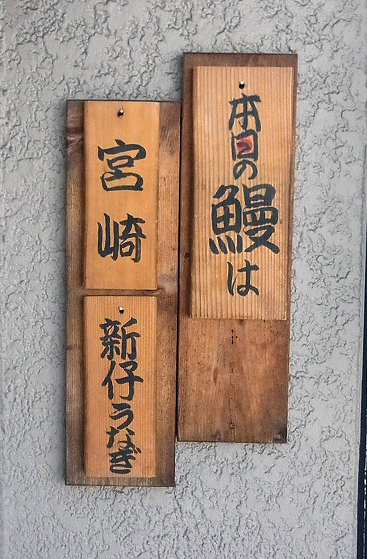 本日の鰻は
宮崎
新仔うなぎ